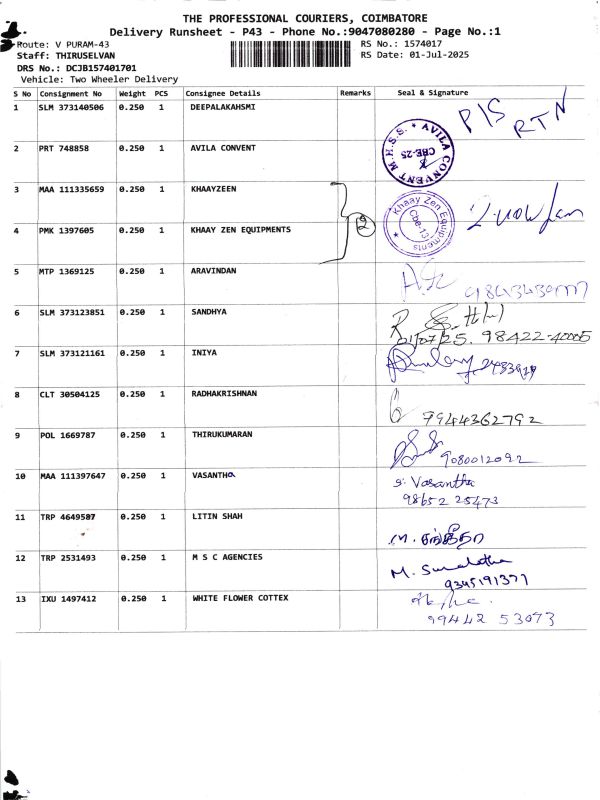 THE PROFESSIONAL COURIERS, COIMBATORE
Delivery Runsheet - P43 - Phone No.:9047080280 - Page No.:1
Route: V PURAM-43 RS No.: 1574017
Staff: THIRUSELVAN RS Date: 01-Jul-2025
DRS No.: DCJB157401701
Vehicle: Two Wheeler Delivery
S No Consignment No Weight PCS Consignee Details Remarks Seal & Signature
1 SLM 373140506 0.250 1 DEEPALAKAHSMI P/S RTN
2 PRT 748858 0.250 1 AVILA CONVENT AVILA CONVENT M.H.S.S. CBE-25
3 MAA 111335659 0.250 1 KHAAYZEEN
2 Khaay Zen Equipments Cbe-13
4 PMK 1397605 0.250 1 KHAAY ZEN EQUIPMENTS
5 MTP 1369125 0.250 1 ARAVINDAN
6 SLM 373123851 0.250 1 SANDHYA
01/07/25. 98422-40005
7 SLM 373121161 0.250 1 INIYA
8 CLT 30504125 0.250 1 RADHAKRISHNAN
7944362792
9 POL 1669787 0.250 1 THIRUKUMARAN
9080012092
10 MAA 111397647 0.250 1 VASANTHA s. Vasantha
98652 25473
11 TRP 4649587 0.250 1 LITIN SHAH
12 TRP 2531493 0.250 1 M S C AGENCIES M.
9345191377
13 IXU 1497412 0.250 1 WHITE FLOWER COTTEX
99442 53073